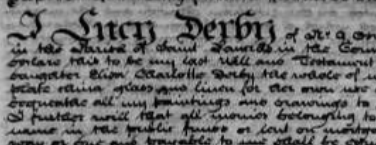 I Lucy Derby of No 9
in the Parish of Saint in the
Declare this to be my last Will and Testament
daughter Eliza Charlotte Derby the whole of
plate china glass and linen for her own use
bequeath all my paintings and drawings to
I further will that all monies belonging to
name in the public funds or lent on mortgage
to me shall be